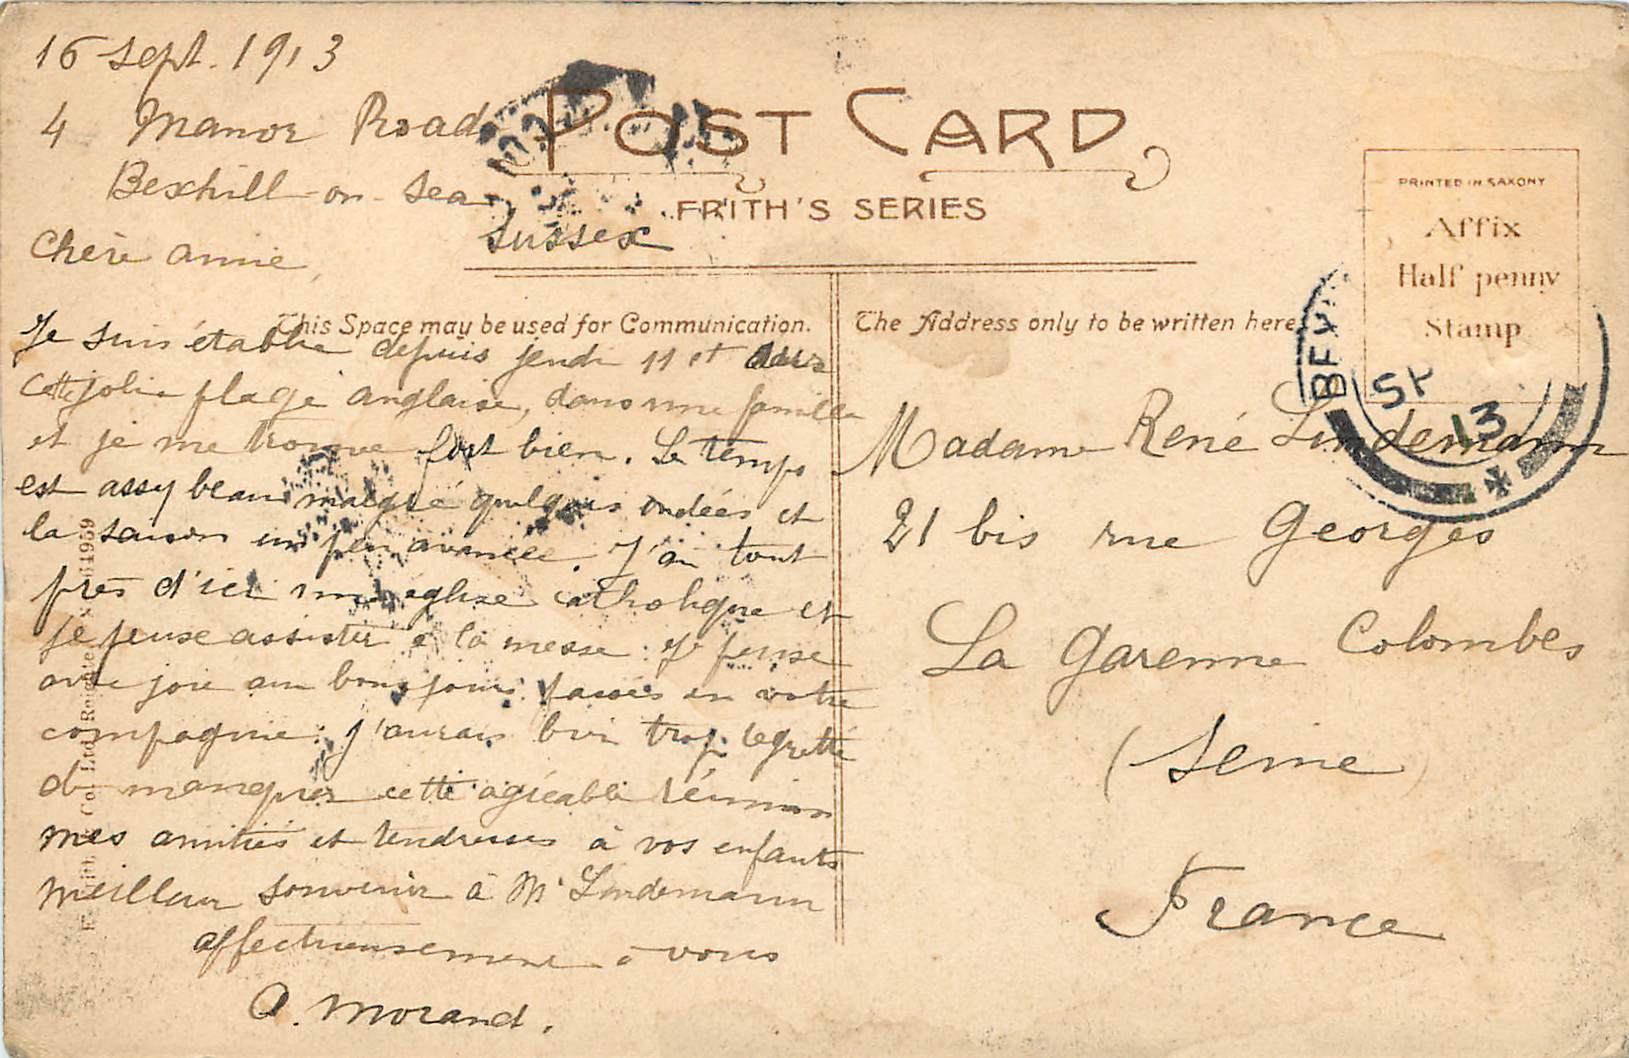 16 sept. 1913
4 Manor Road
Bexhill-on-Sea
Sussex
POST CARD
FRITH'S SERIES
PRINTED IN SAXONY
Affix
Half penny
Stamp
Chère amie,
This Space may be used for Communication.
Je suis établie depuis jeudi 11 et dans
cette jolie plage anglaise, dans une famille
et je me trouve fort bien. Le temps
est assez beau malgré quelques ondées et
la saison un peu avancée. J'ai tout
près d'ici une église catholique et
je puis assister à la messe. Je pense
avec joie aux bons jours passés en votre
compagnie: j'aurais bien trop regretté
de manquer cette agréable réunion
mes amitiés et tendresses à vos enfants
meilleur souvenir à Mr Lindemann
affectueusement à vous
A. Morand.
The Address only to be written here
BEX
SP
13
Madame René Lindemann
21 bis rue Georges
La Garenne Colombes
(Seine)
France
Co. Ltd. Reigate. 61959